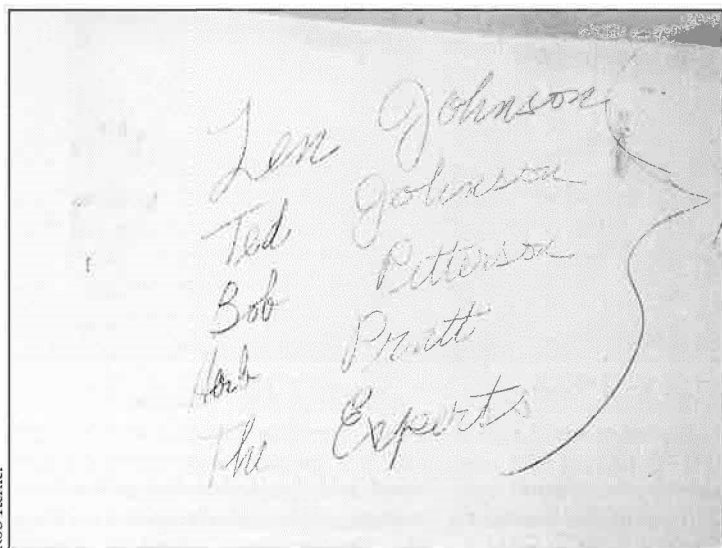 Len Johnson
Ted Johnson
Bob Pitterson
Herb Pratt
The Experts